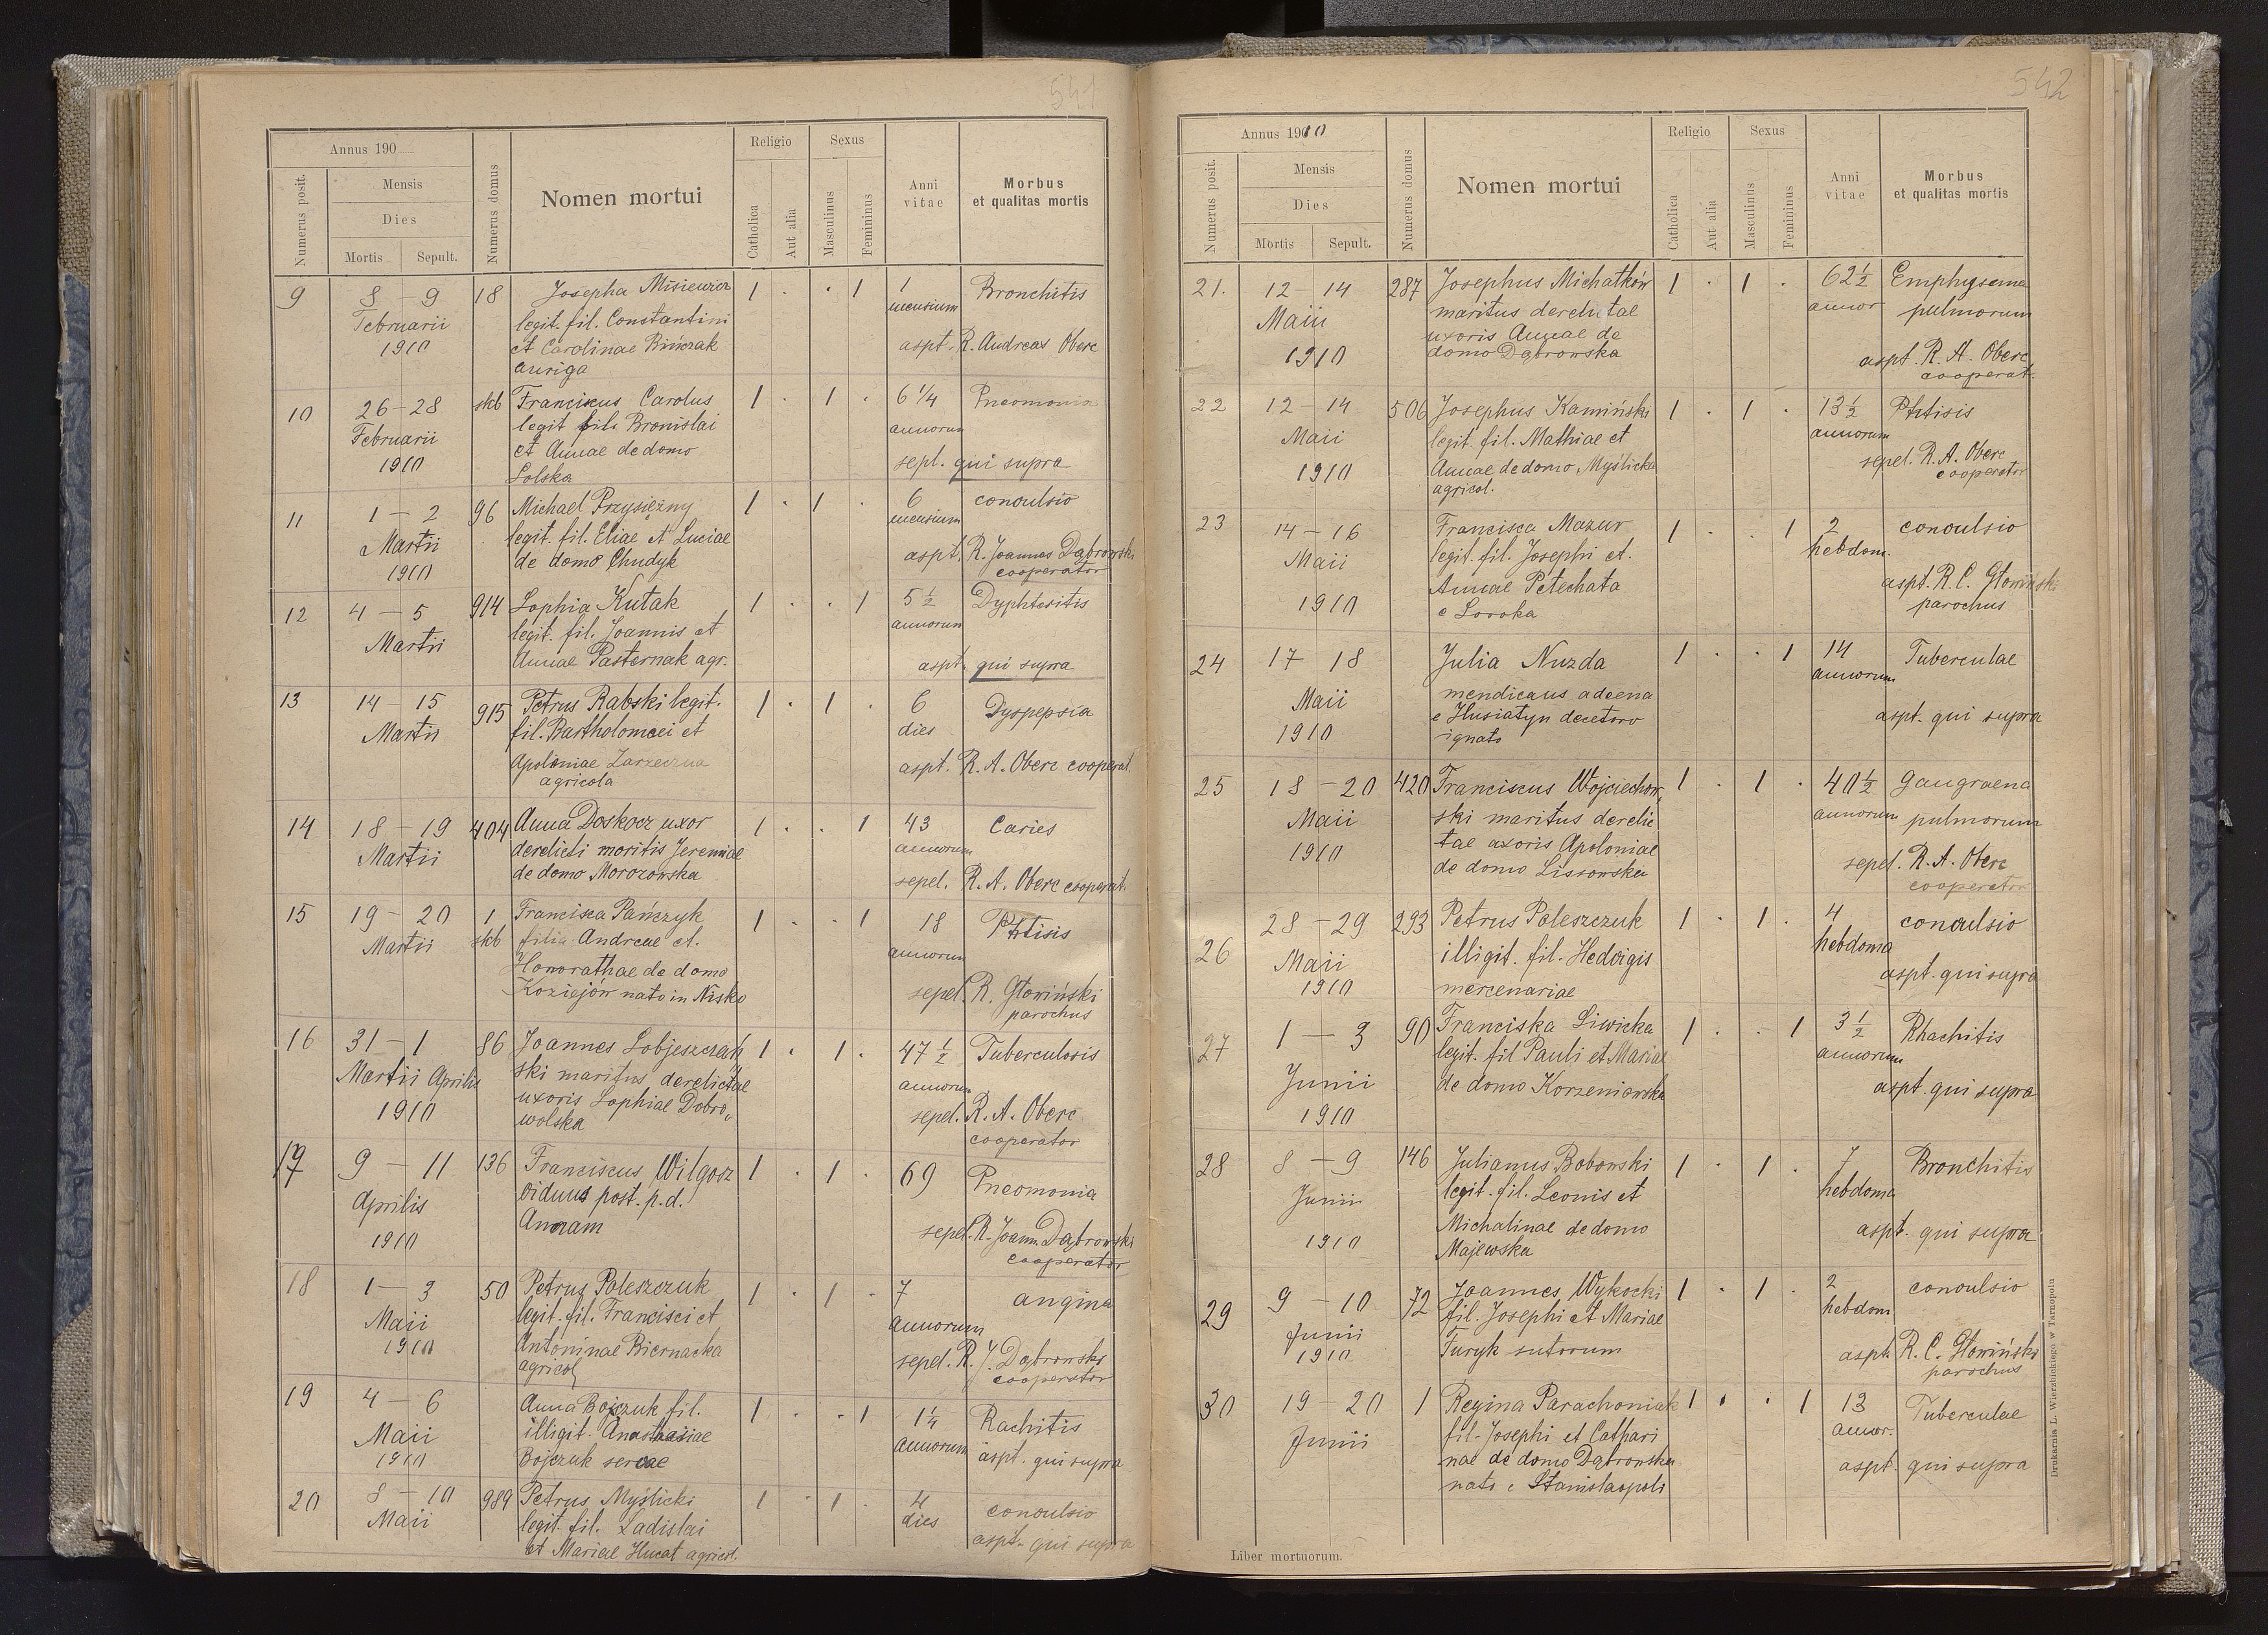 541
Annus 190
Numerus posit.
Mensis
Dies
Mortis
Sepult.
Numerus domus
Nomen mortui
Religio
Catholica
Aut alia
Sexus
Masculinus
Femininus
Anni
vitae
Morbus
et qualitas mortis
9 8 – 9 18 Josepha Misiewicz 1 . . 1 1 Bronchitis
Februarii legit. fil. Constantini mensium
1910 et Carolinae Bińczak aspt. R. Andreas Oberc
auriga
10 26 – 28 skb Franciscus Carolus 1 . 1 . 6 1/4 Pneomonia
Februarii legit fil. Bronislai annorum
1910 et Annae de domo sept. qui supra
Solska
11 1 – 2 96 Michael Przysiężny 1 . 1 . 6 convulsio
Martii legit. fil. Eliae et Luciae mensium
1910 de domo Chudyk aspt. R. Joannes Dąbrowski
cooperator
12 4 – 5 914 Sophia Kutak 1 . . 1 5 1/2 Dyphteritis
Martii legit. fil. Joannis et annorum
Annae Pasternak agr. aspt. qui supra
13 14 – 15 915 Petrus Rabski legit. 1 . 1 . 6 Dyspepsia
Martii fil. Bartholomaei et dies
Apoloniae Zarzeczna aspt. R. A. Oberc cooperat.
agricola
14 18 – 19 404 Anna Doskocz uxor 1 . . 1 43 Caries
Martii derelicti moritis Jeremiae annorum
de domo Morozowska sepel. R. A. Oberc cooperat.
15 19 – 20 1 Francisca Pańczyk 1 . . 1 18 Phtisis
Martii skb filia Andreae et. annorum
Honorathae de domo
Koziejów nato in Nisko sepel. R. Głowiński
parochus
16 31 – 1 86 Joannes Sobjeszczań 1 . 1 . 47 1/2 Tuberculosis
Martii Aprilis ski maritus derelictae annorum
1910 uxoris Sophiae Dobro„ sepel. R. A. Oberc
wolska cooperator
17 9 – 11 136 Franciscus Wilgocz 1 . 1 . 69 Pneomonia
Aprilis viduus post. p. d.
1910 Annam sepel. R. Joann. Dąbrowski
cooperator
18 1 – 3 50 Petrus Poleszczuk 1 . 1 . 7 angina
Maii legit. fil. Francisci et annorum
1910 Antoninae Biernacka sepel. R. J. Dąbrowski
agricol cooperator
19 4 – 6 Anna Bojczuk fil. 1 . . 1 1 1/4 Rachitis
Maii illigit. Anastasiae annorum aspt. qui supra
1910 Bojczuk servae
20 8 – 10 989 Petrus Myślicki 1 . 1 . 4 convulsio
Maii legit. fil. Ladislai dies aspt. qui supra
et Mariae Hucat agricol.
542
Annus 1910
Numerus posit.
Mensis
Dies
Mortis
Sepult.
Numerus domus
Nomen mortui
Religio
Catholica
Aut alia
Sexus
Masculinus
Femininus
Anni
vitae
Morbus
et qualitas mortis
21. 12 – 14 287 Josephus Michałków 1 . 1 . 62 1/2 Emphysema
Maii maritus derelictae annor pulmorum
1910 uxoris Annae de
domo Dąbrowska aspt. R. A. Oberc
cooperat.
22 12 – 14 506 Josephus Kamiński 1 . 1 . 13 1/2 Phtisis
Maii legit. fil. Mathiae et annorum
1910 Annae de domo Myślicka sepel. R. A. Oberc
agricol. cooperator
23 14 – 16 Francisca Mazur 1 . . 1 2 convulsio
Maii legit. fil. Josephi et. hebdom.
1910 Annae Petechata aspt. R. C. Głowiński
e Soroka parochus
24 17 18 Julia Nuzda 1 . . 1 14 Tuberculae
Maii mendicans adeena annorum
1910 e Husiatyn decetoro aspt. qui supra
ignato
25 18 – 20 420 Franciscus Wojciechow„ 1 . 1 . 40 1/2 gangraena
Maii ski maritus derelic annorum pulmorum
1910 tae uxoris Apoloniae sepel. R. A. Oberc
de domo Lissowska cooperator
26 28 – 29 293 Petrus Poleszczuk 1 . 1 . 4 convulsio
Maii illigit. fil. Hedvigis hebdoma
1910 mercenariae aspt. qui supra
27 1 – 3 90 Franciska Liwicka 1 . . 1 3 1/2 Rhachitis
Junii legit. fil Pauli et Mariae annorum
1910 de domo Korzeniowska aspt. qui supra
28 8 – 9 146 Julianus Bobowski 1 . 1 . 7 Bronchitis
Junii legit. fil. Leonis et hebdoma
1910 Michalinae de domo aspt. qui supra
Majewska
29 9 – 10 72 Joannes Wykocki 1 . 1 . 2 convulsio
Junii fil. Josephi et Mariae hebdom
1910 Furyk sutorum aspt. R. C. Głowiński
parochus
30 19 – 20 1 Regina Parachoniak 1 . . 1 13 Tuberculae
Junii fil. Josephi et Cathari annor.
nae de domo Dąbrowska aspt. qui supra
nato e Stanislaopoli
Liber mortuorum.
Drukarnia L. Wierzbickiego w Tarnopolu